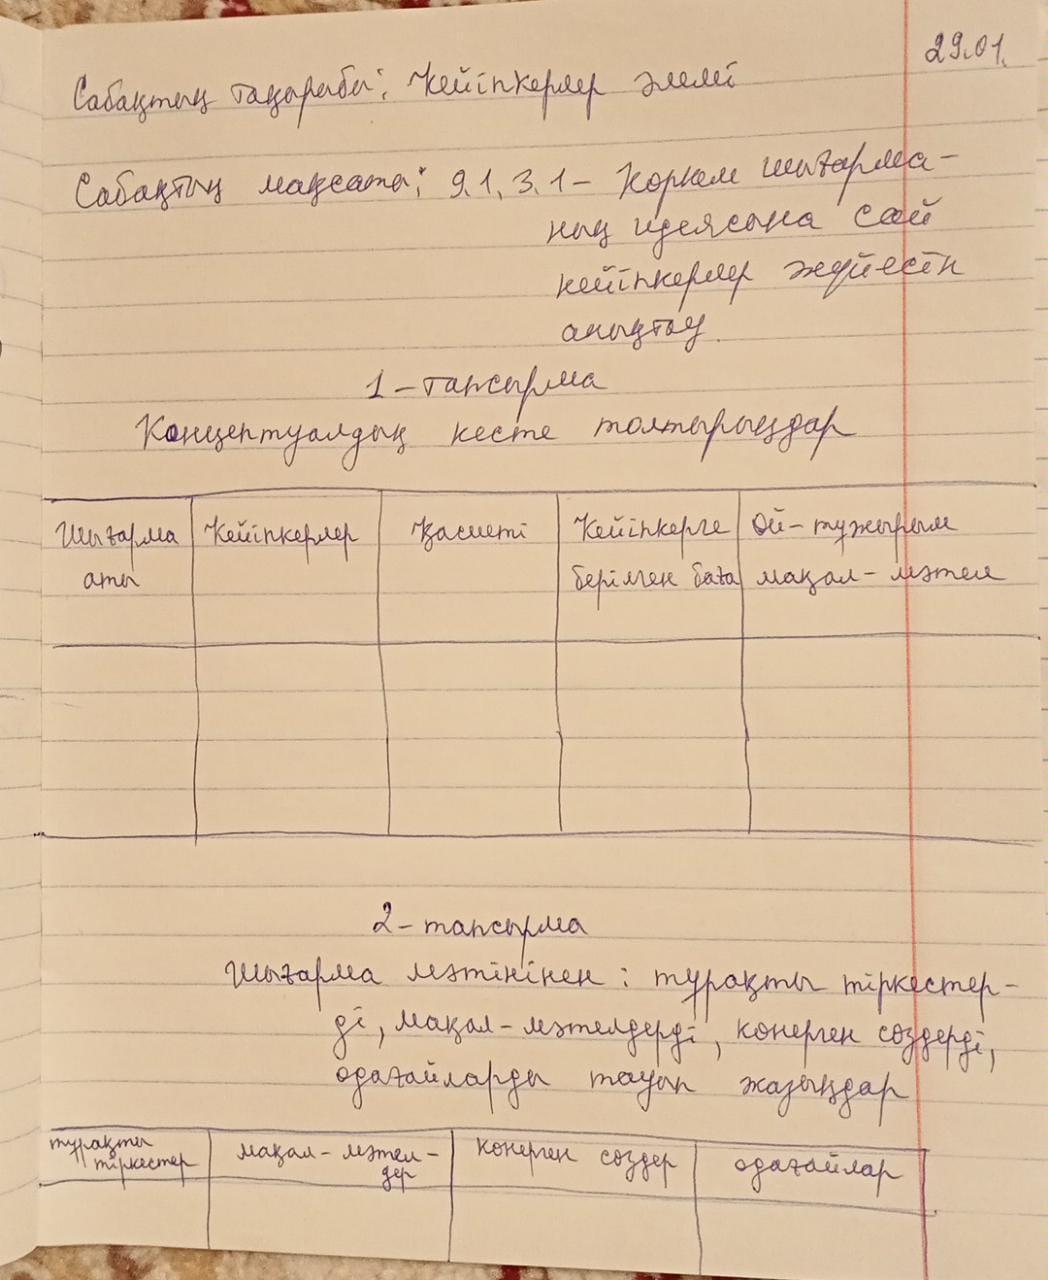 29.01.
Сабақтың тақырыбы: Кейіпкерлер әлемі
Сабақтың мақсаты: 9.1.3.1 – Көркем шығарма-
ның идеясына сай
кейіпкерлер жүйесін
анықтау.
1 – тапсырма
Концептуалдық кесте толтырыңдар
Шығарма аты | Кейіпкерлер | Қасиеті | Кейіпкерге берілген баға | Ой-тұжырым мақал-мәтел
2 – тапсырма
Шығарма мәтінінен: тұрақты тіркестер-
ді, мақал-мәтелдерді, көнерген сөздерді,
одағайларды тауып жазыңдар
тұрақты тіркестер | мақал-мәтел-дер | көнерген сөздер | одағайлар